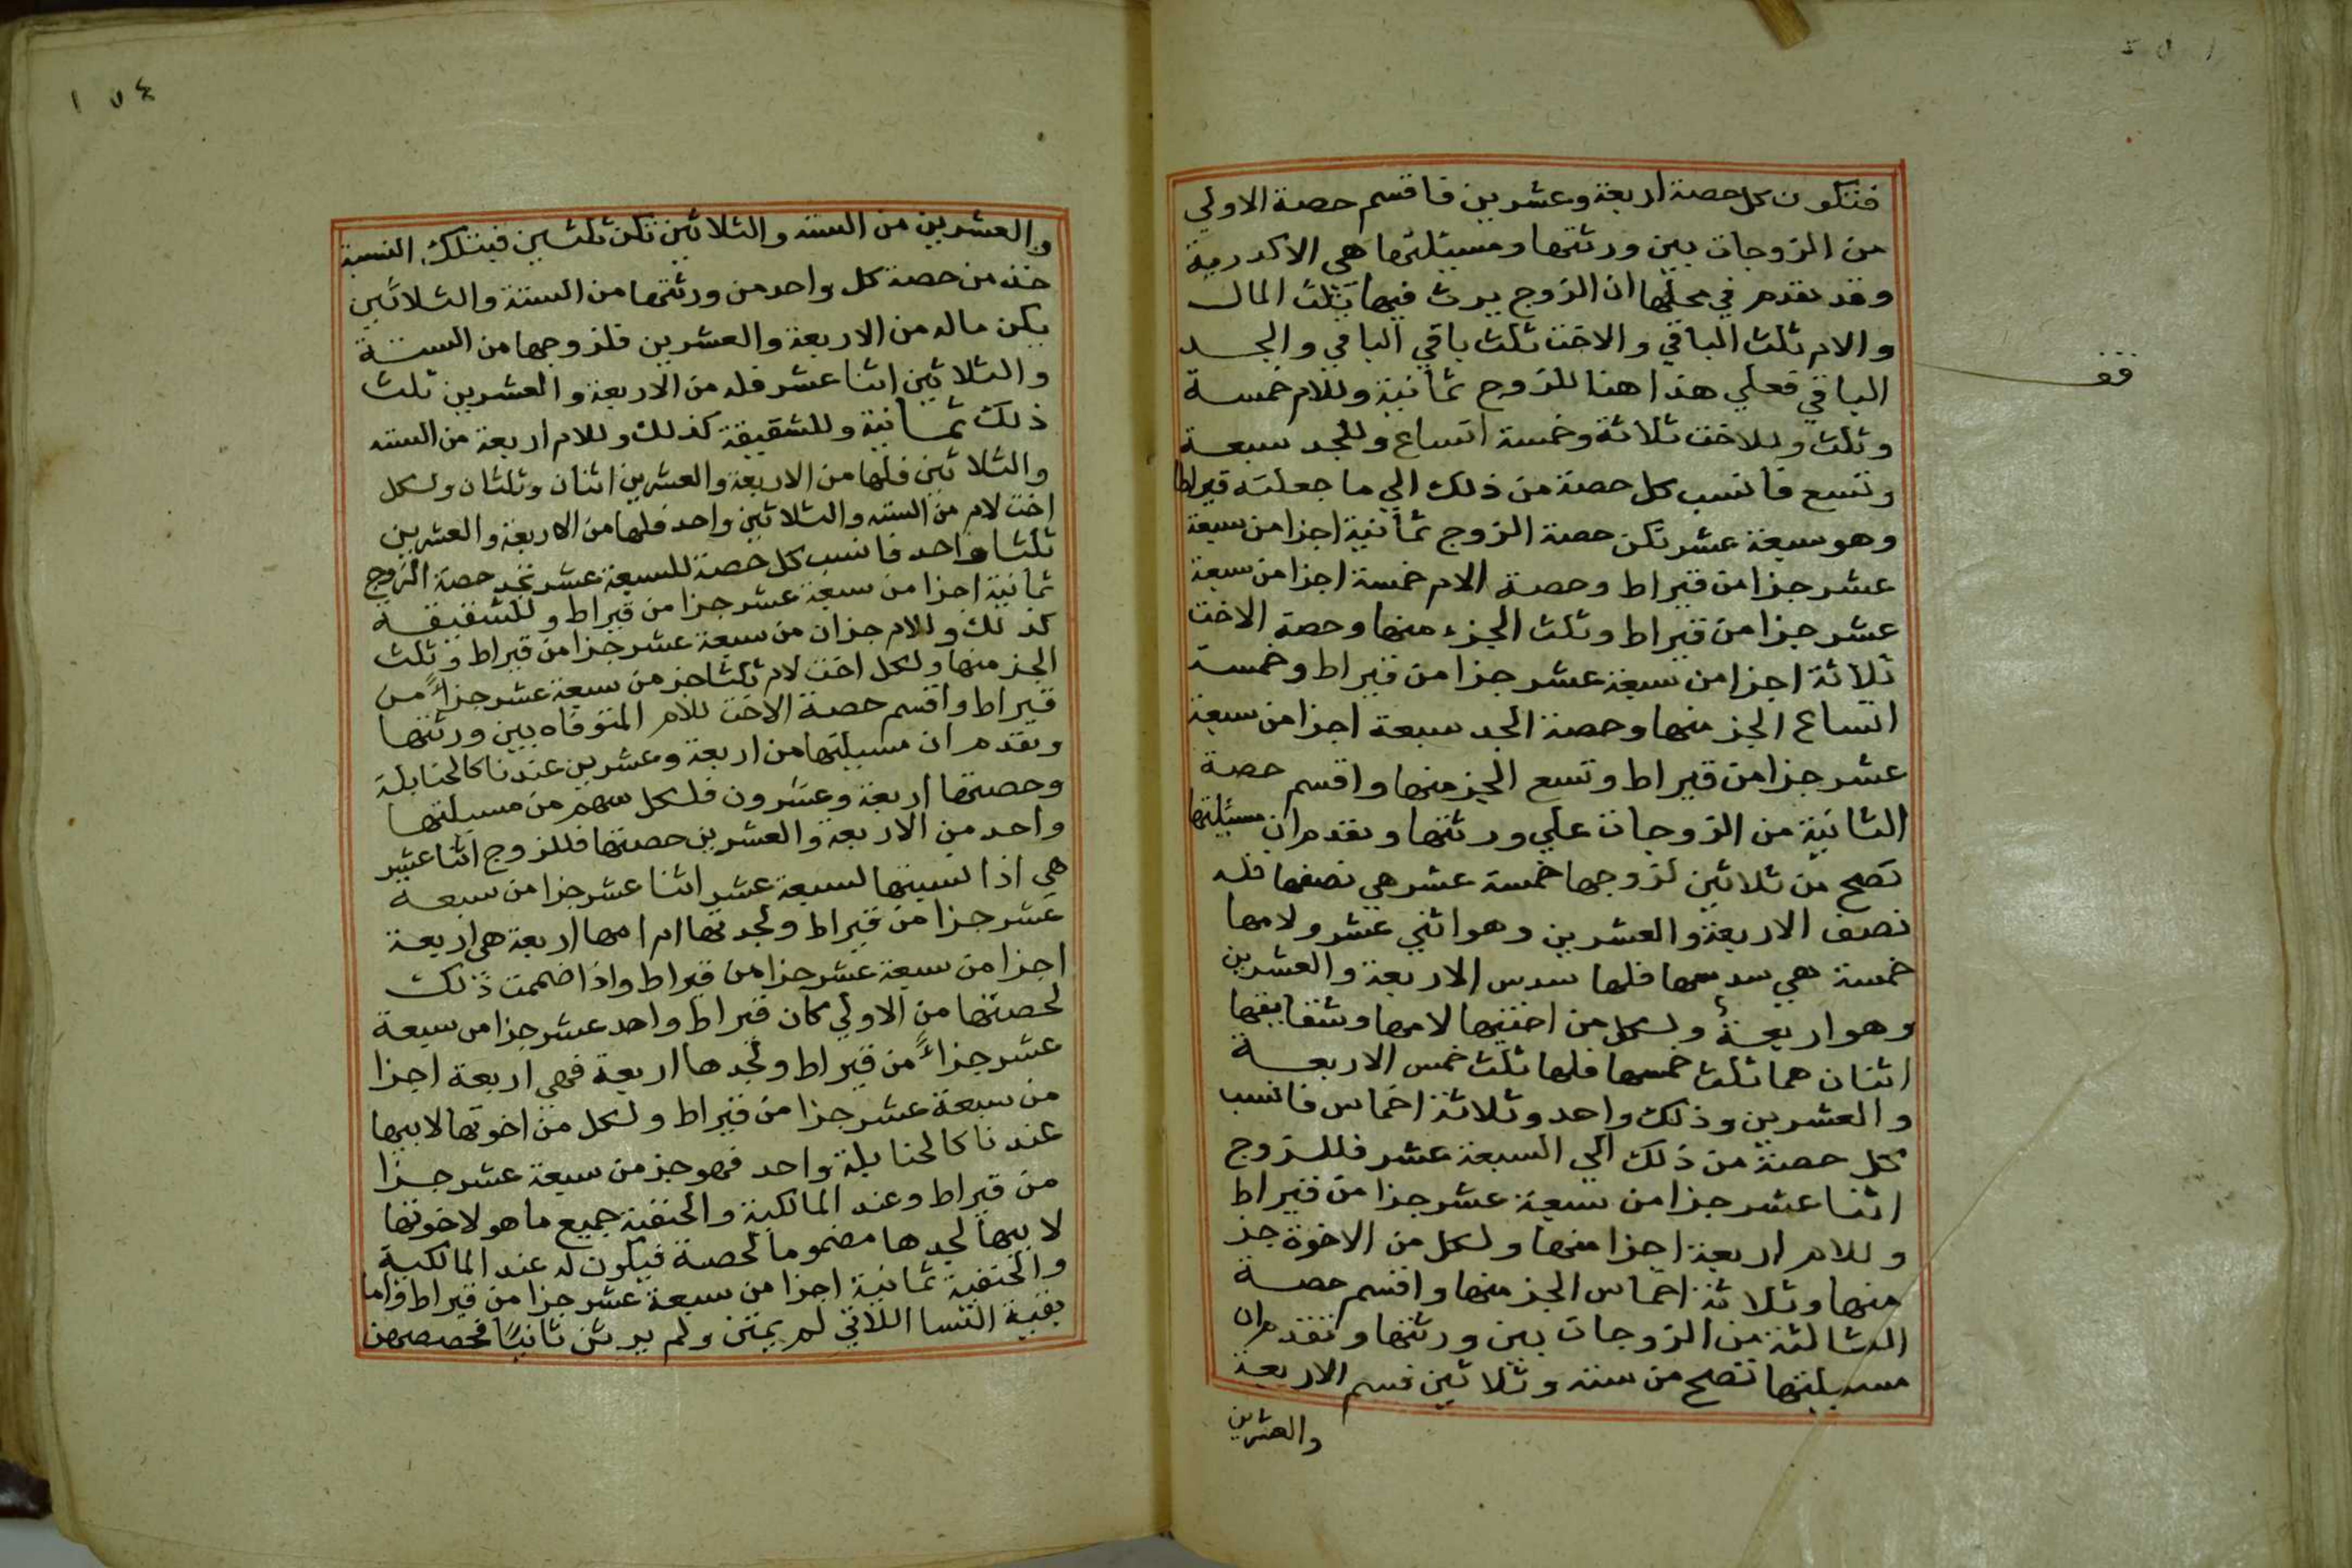 فتكون كل حصة اربعة وعشرين فاقسم حصة الاولي
من الزوجات بين ورثتها ومسيئلتها هي الاكدرية
وقد تقدم في محلها ان الزوج يرث فيها بثلث المال
والام ثلث الباقي والاخت ثلث باقي الباقي والجد
الباقي فعلي هذا هنا للزوج ثمانية وللام خمسة
وثلث وللاخت ثلاثة وخمسة اتساع وللجد سبعة
وتسع فانسب كل حصة من ذلك الي ما جعلته قيراطا
وهو سبعة عشر تكن حصة الزوج ثمانية اجزا من سبعة
عشر جزا من قيراط وحصة الام خمسة اجزا من سبعة
عشر جزا من قيراط وثلث الجزء منها وحصة الاخت
ثلاثة اجزا من سبعة عشر جزا من قيراط وخمسة
اتساع الجز منها وحصة الجد سبعة اجزا من سبعة
عشر جزا من قيراط وتسع الجز منها واقسم حصة
الثانية من الزوجات علي ورثتها وتقدم ان مسئلتها
تصح من ثلاثين لزوجها خمسة عشر هي نصفها فله
نصف الاربعة والعشرين وهو اثني عشر ولامها
خمسة هي سدسها فلها سدس الاربعة والعشرين
وهو اربعة ولكل من اختيها لامها وشقايقها
اثنان هما ثلث خمسها فلها ثلث خمس الاربعة
والعشرين وذلك واحد وثلاثة اخماس فانسب
كل حصة من ذلك الي السبعة عشر فللزوج
اثنا عشر جزا من سبعة عشر جزا من قيراط
وللام اربعة اجزا منها ولكل من الاخوة جز
منها وثلاثة اخماس الجز منها واقسم حصة
الثالثة من الزوجات بين ورثتها وتقدم ان
مسيلتها تصح من ستة وثلاثين قسم الاربعة
والعشرين
قف
١٥٤
والعشرين من الستة والثلاثين تكن ثلثين فبتلك النسبة
خذ من حصة كل واحد من ورثتها من الستة والثلاثين
يكن ماله من الاربعة والعشرين فلزوجها من الستة
والثلاثين اثنا عشر فله من الاربعة والعشرين ثلث
ذلك ثمانية وللشقيقة كذلك وللام اربعة من الستة
والثلاثين فلها من الاربعة والعشرين اثنان وثلثان ولكل
اخت لام من الستة والثلاثين واحد فلها من الاربعة والعشرين
ثلثا واحد فانسب كل حصة للسبعة عشر تجد حصة الزوج
ثمانية اجزا من سبعة عشر جزا من قيراط وللشقيقة
كذلك وللام جزان من سبعة عشر جزا من قيراط وثلث
الجز منها ولكل اخت لام ثلثا جز من سبعة عشر جزاً من
قيراط واقسم حصة الاخت للام المتوفاه بين ورثتها
وتقدم ان مسيلتها من اربعة وعشرين عندنا كالحنابلة
وحصتها اربعة وعشرون فلكل سهم من مسيلتها
واحد من الاربعة والعشرين حصتها فللزوج اثنا عشر
هي اذا نسبتها لسبعة عشر اثنا عشر جزا من سبعة
عشر جزا من قيراط ولجدتها ام امها اربعة هي اربعة
اجزا من سبعة عشر جزا من قيراط واذا ضممت ذلك
لحصتها من الاولي كان قيراط واحد عشر جزا من سبعة
عشر جزاً من قيراط ولجدها اربعة فهي اربعة اجزا
من سبعة عشر جزا من قيراط ولكل من اخوتها لابيها
عندنا كالحنابلة واحد فهو جز من سبعة عشر جزا
من قيراط وعند المالكية والحنفية جميع ما هو لاخوتها
لابيها لجدها مضموما لحصة فيكون له عند المالكية
والحنفية ثمانية اجزا من سبعة عشر جزا من قيراط واما
بقية النسا اللاتي لم يمتن ولم يرثن ثانيا فحصصهن